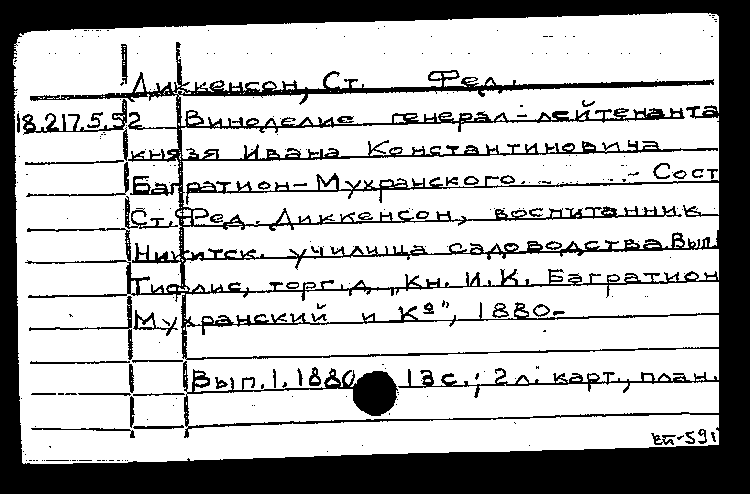 Диккенсон, Ст. Фед.
18.217.5.52 Виноделие генерал-лейтенанта
князя Ивана Константиновича
Багратион-Мухранского. - Сост
Ст. Фед. Диккенсон, воспитанник
Никитск. училища садоводства. Вып.1
Тифлис, торг. д. „Кн. И.К. Багратион
Мухранский и Кº", 1880-
Вып. 1. 1880. 13 с.; 2 л. карт., план.
вй-591